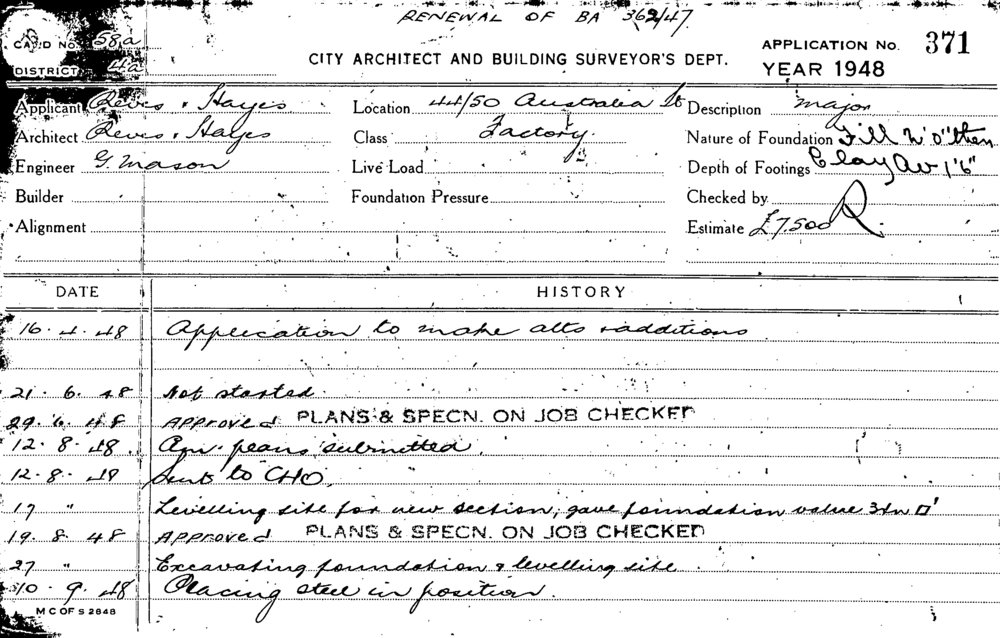 RENEWAL OF BA 362/47
CARD No. 58a
DISTRICT 4a
CITY ARCHITECT AND BUILDING SURVEYOR'S DEPT.
APPLICATION No. 371
YEAR 1948
Applicant Reves & Hayes
Location 44/50 Australia St
Description major
Architect Reves & Hayes
Class Factory.
Nature of Foundation Fill then
Engineer G. Mason
Live Load
Depth of Footings Clay Av 1'6"
Builder
Foundation Pressure
Checked by
Alignment
Estimate £7,500
DATE HISTORY
16.4.48 Application to make alts & additions
21.6.48 Not started.
29.6.48 APPROVED PLANS & SPECN. ON JOB CHECKED
12.8.48 Am. plans submitted.
12.8.48 Sent to CHO.
17 " Levelling site for new section; gave foundation value 3tn □'
19.8.48 APPROVED PLANS & SPECN. ON JOB CHECKED
27 " Excavating foundation & levelling site.
10.9.48 Placing steel in position.
M C OF S 2848